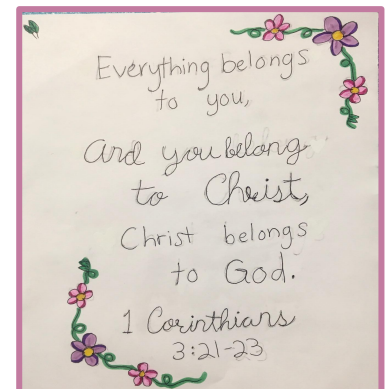 Everything belongs
to you,
and you belong
to Christ,
Christ belongs
to God.
1 Corinthians
3:21-23